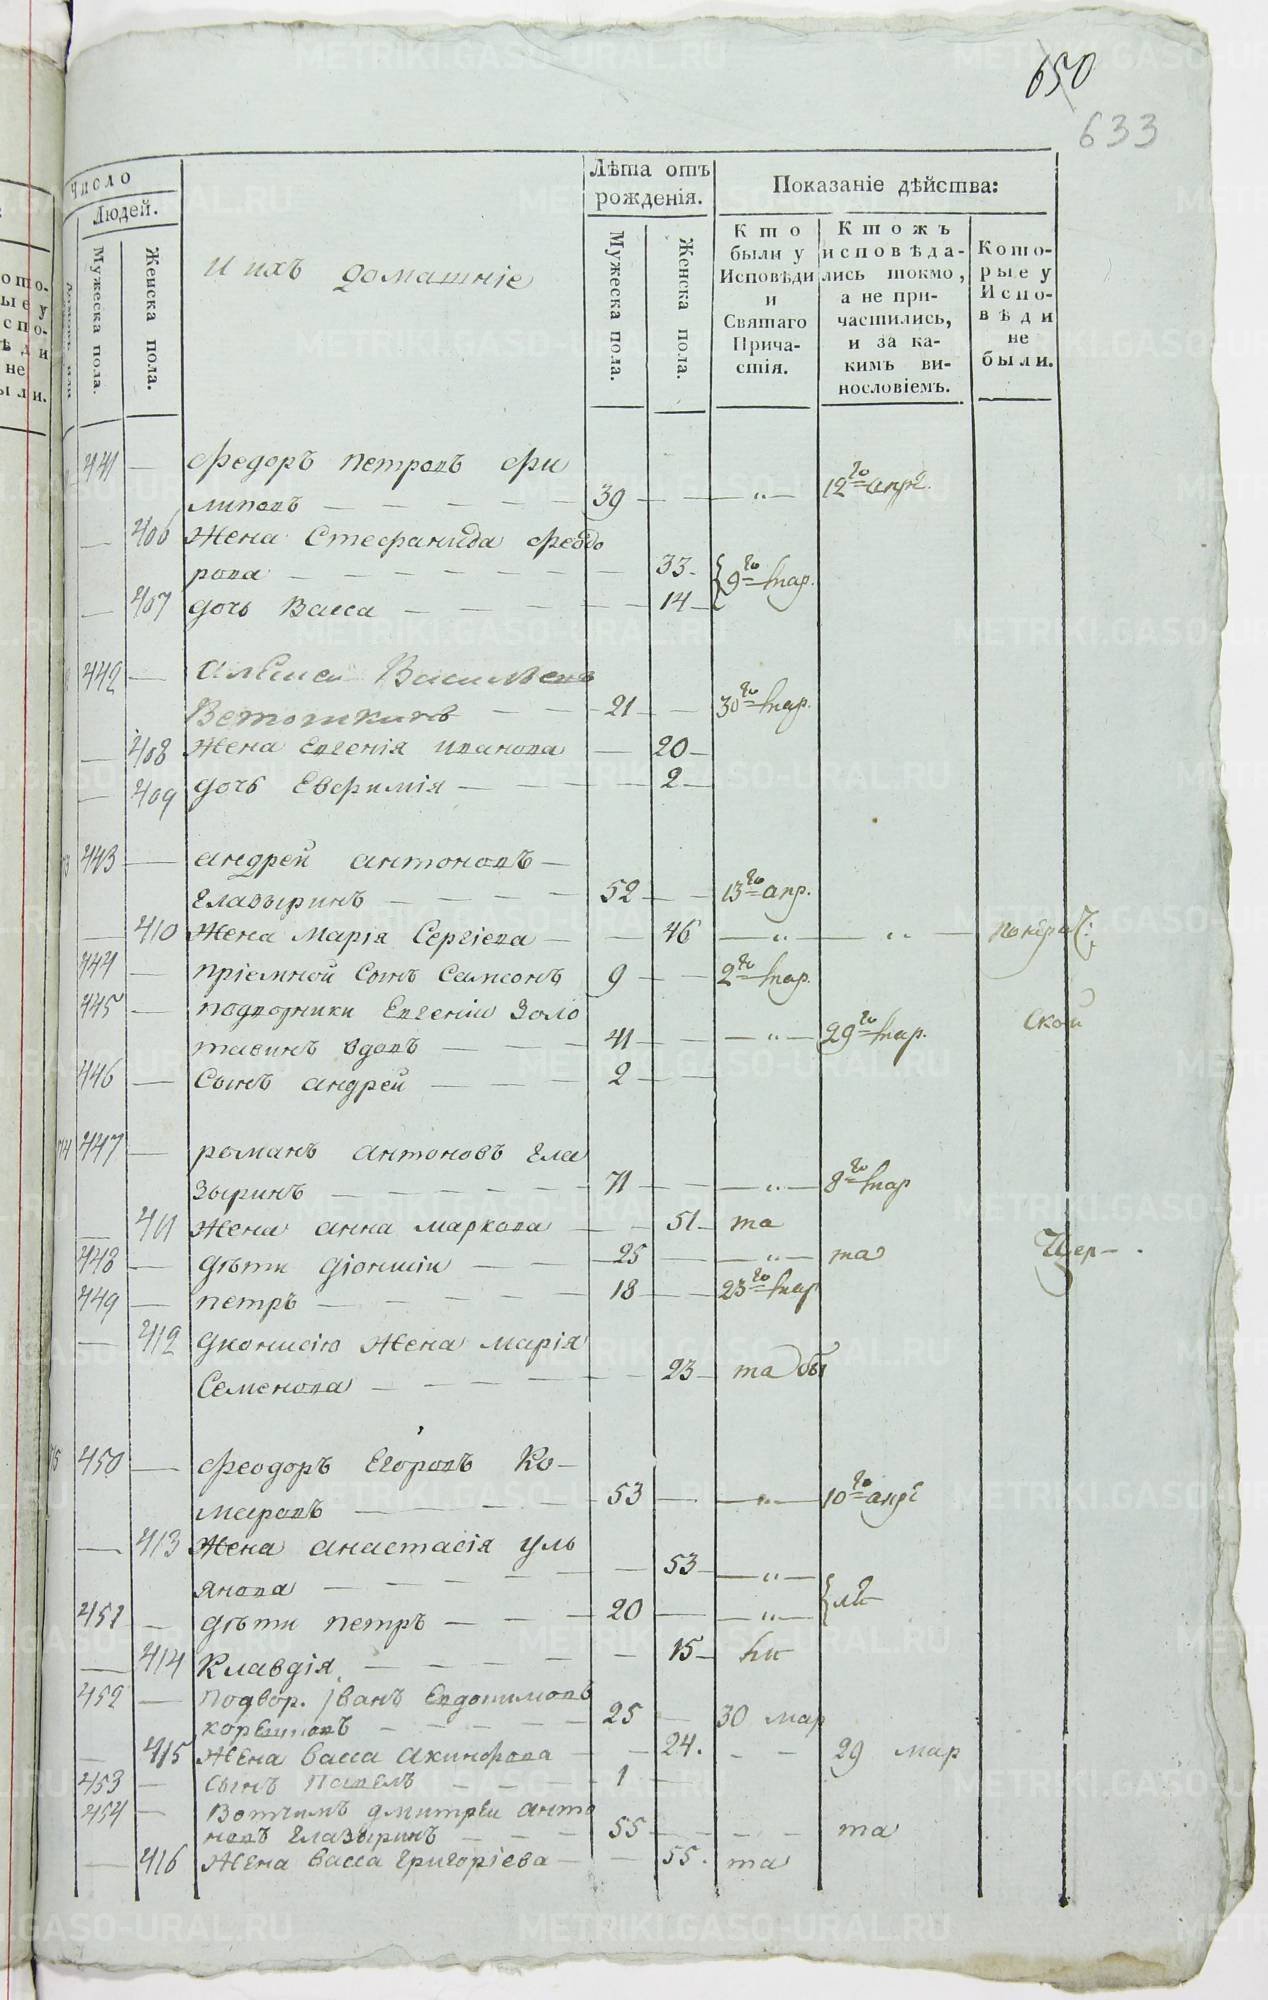 650
633
Число
Людей.
Мужеска пола.
Женска пола.
и ихъ домашніе
Лѣта отъ рожденія.
Мужеска пола.
Женска пола.
Показаніе дѣйства:
Кто были у Исповѣди и Святаго Прича-стія.
Ктожъ исповѣда-лись токмо, а не при-частились, и за ка-кимъ ви-нословіемъ.
Кото-рые у Испо-вѣди не были.
441 — Федоръ Петровъ Фи
липовъ — 39 — — „ — 12го апр.
— 406 Жена Стефанида Феодо
рова — 33 — 9го мар.
— 407 дочь Васса — 14 —
442 — Алексей Васильевъ
Ветошкинъ — 21 — 30го мар.
— 408 Жена Евгенія Иванова — 20 —
— 409 дочь Евфимія — 2 —
443 — Андрей Антоновъ —
Глазыринъ — 52 — 13го апр.
— 410 Жена Марія Сергіева — 46 — „ — „ —
444 — пріемной Сынъ Самсонъ 9 — 2го мар.
445 — подворники Евгеніи Золо
тавинъ вдовъ — 41 — — „ — 29го мар. ской
446 — Сынъ Андрей — 2 —
74 447 — Романъ Антоновъ Гла
зыринъ — 71 — — „ — 8го мар
— 411 Жена Анна Маркова — 51 — та
448 — дѣти Діонисіи — 25 — — „ — та Цер—
449 — Петръ — 18 — 23го мар
— 412 Дионисію Жена Марія
Семенова — 23 — та бы
75 450 — Феодоръ Егоровъ Ко—
маровъ — 53 — — „ — 10го апр
— 413 Жена Анастасія Уль
янова — 53 — — „ —
451 — дѣти Петръ — 20 — — „ —
— 414 Клавдія — 15 —
452 — Подвор. Іванъ Евдокимовъ
— 25 — 30 мар
— 415 Жена Васса Акинфова — 24. — — 29 мар
453 — Сынъ Павелъ — 1 —
454 — Вотчимъ Дмитреи Анто
новъ Глазыринъ — 55 — — — та
— 416 Жена Васса Григоріева — 55. та
METRIKI.GASO-URAL.RU